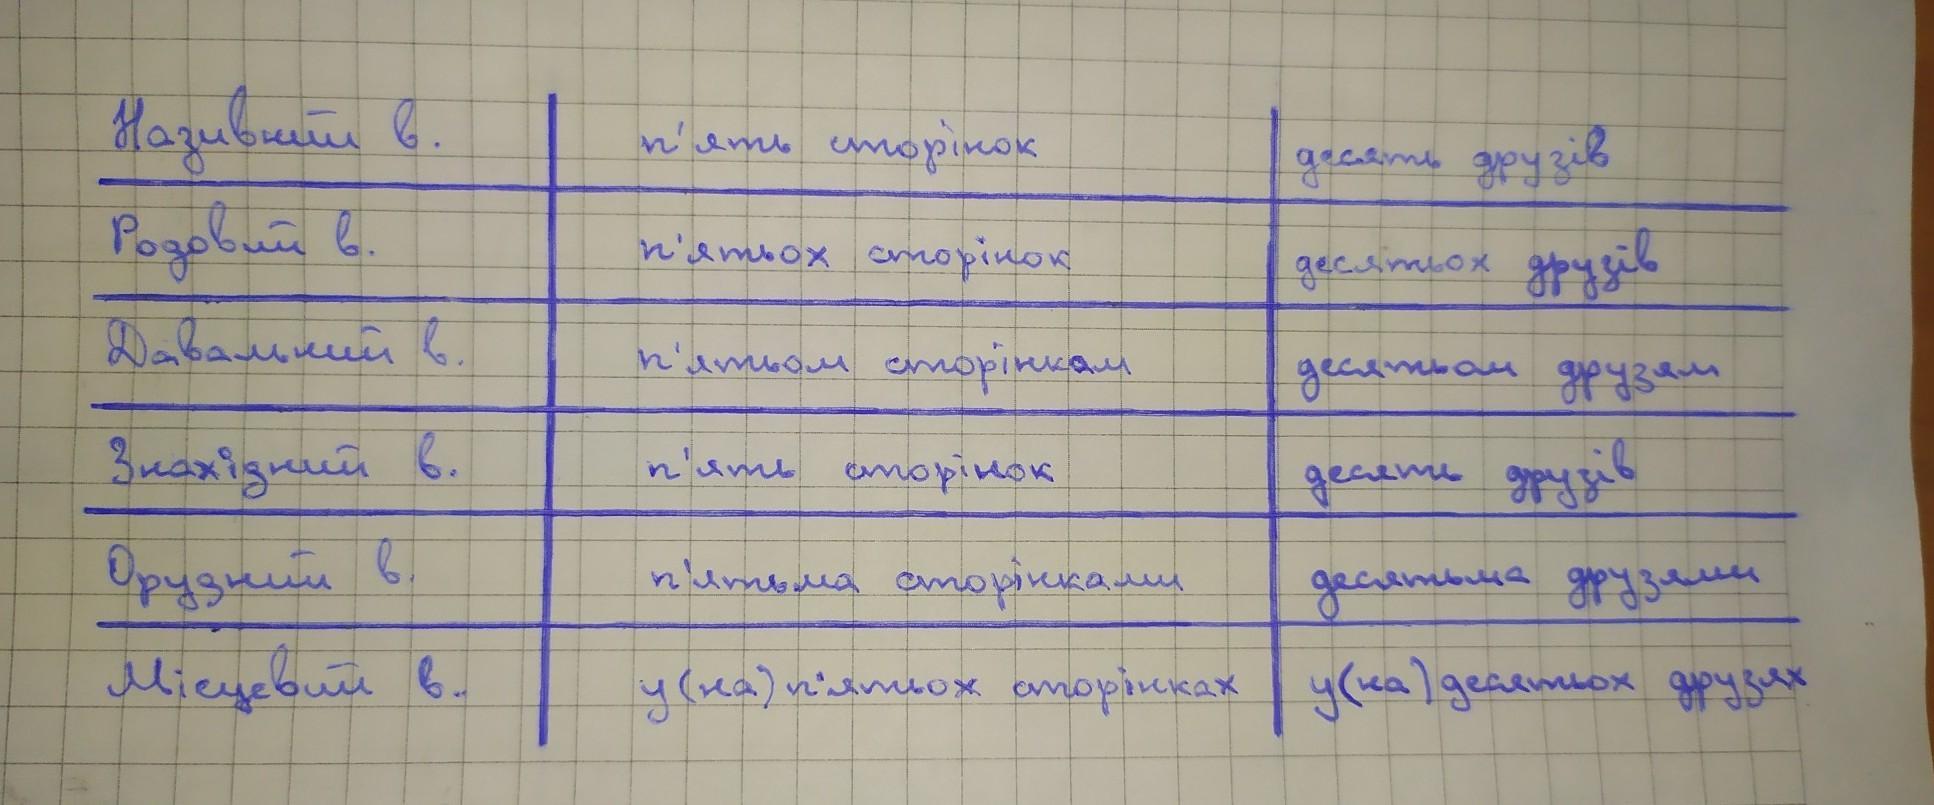 Називний в. п'ять сторінок десять друзів
Родовий в. п'ятьох сторінок десятьох друзів
Давальний в. п'ятьом сторінкам десятьом друзям
Знахідний в. п'ять сторінок десять друзів
Орудний в. п'ятьма сторінками десятьма друзями
Місцевий в. у(на) п'ятьох сторінках у(на) десятьох друзях